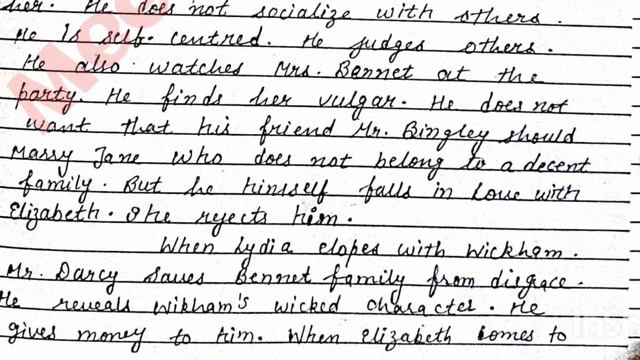 her. He does not socialize with others.
He is self-centred. He judges others.
He also watches Mrs. Bennet at the
party. He finds her vulgar. He does not
want that his friend Mr. Bingley should
Marry Jane who does not belong to a decent
family. But he himself falls in Love with
Elizabeth. She rejects him.
When Lydia elopes with Wickham.
Mr. Darcy saves Bennet family from disgrace.
He reveals Wikham's wicked character. He
gives money to him. When Elizabeth comes to